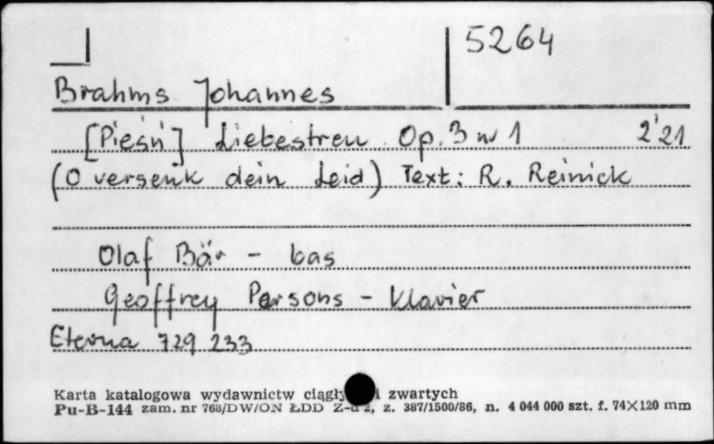 5264
Brahms Johannes
[Pieśń] Liebestreu Op. 3 nr 1 2'21
(O versenk dein Leid) Text: R. Reinick
Olaf Bär - bas
Geoffrey Parsons - Klavier
Eterna 729 233
Karta katalogowa wydawnictw ciągły i zwartych
Pu-B-144 zam. nr 768/DW/ON ŁDD z. 387/1500/86, n. 4 044 000 szt. f. 74×120 mm